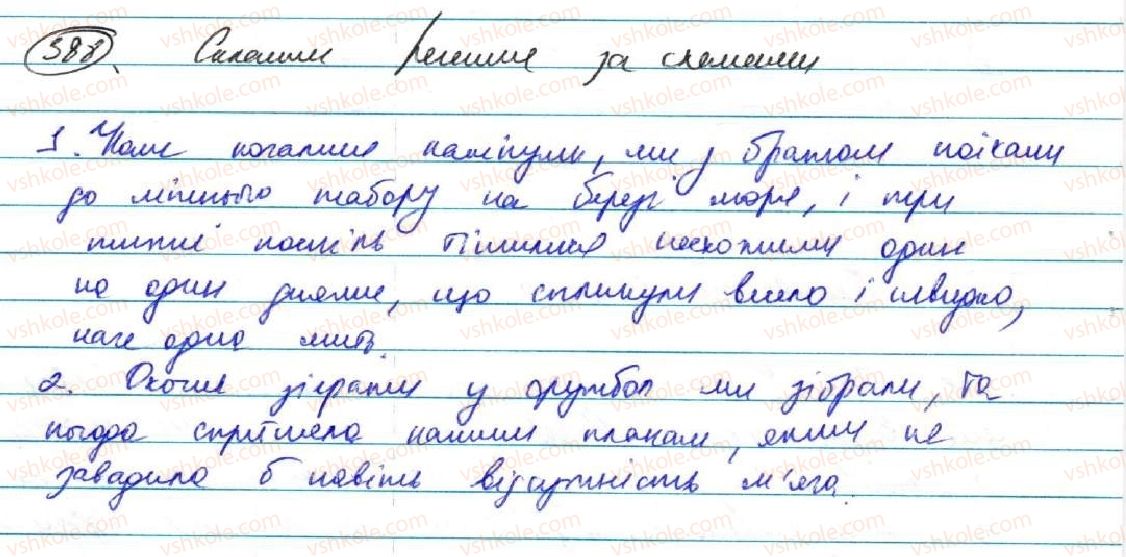 388. Складіть речення за схемами
1. Коли почалися канікули, ми з братом поїхали
до літнього табору на березі моря, і три
тижні поспіль тішилися несхожими один
на один днями, що сплинули весело і швидко,
наче одна мить.
2. Охочих зіграти у футбол ми зібрали, та
погода сприяла нашим планам, яким не
завадила б навіть відсутність м'яча.